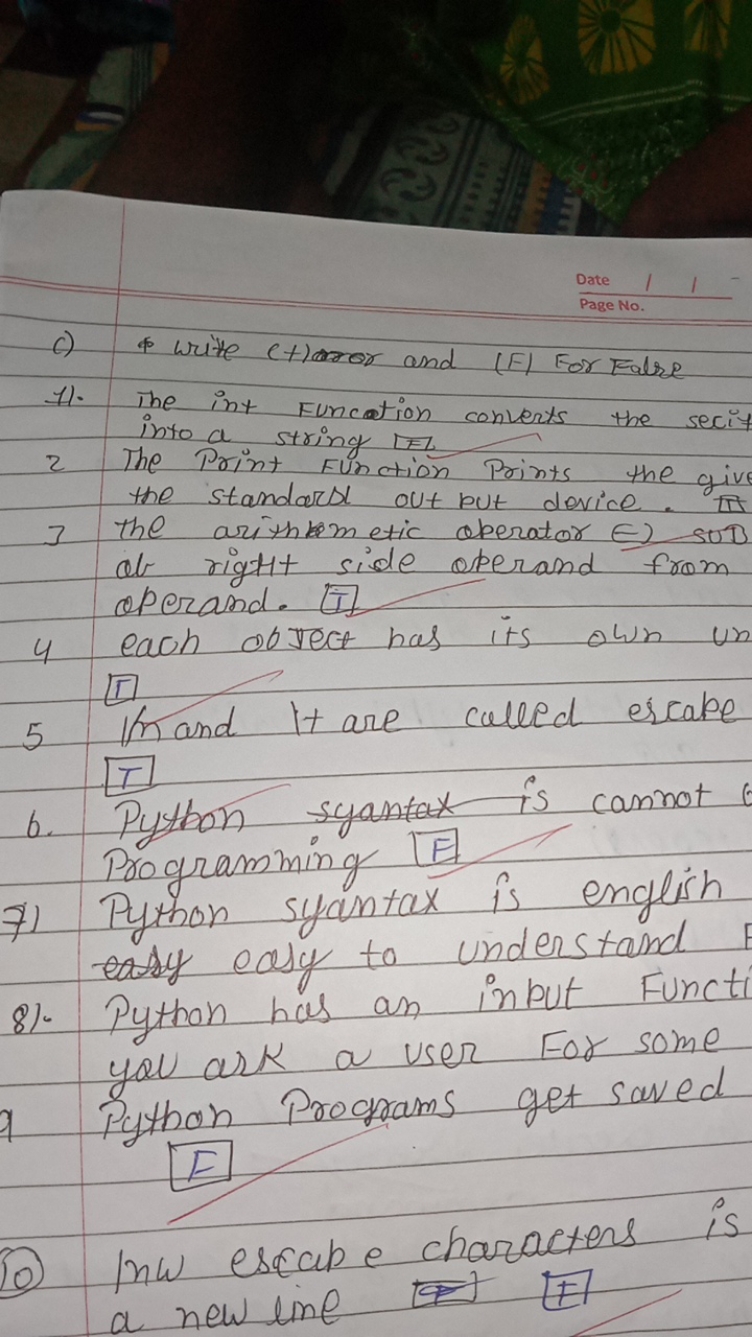 Date / /
Page No.
c) write (t) and (F) For False
1). The int Function converts the
into a string [F]
2 The Print Function Prints the give
the standard out put device.
3 the arithmetic operator (-) SUB
right side operand from
operand. [T]
4 each object has its own un
[T]
5 \n and \t are called escape
[T]
6. Python syantax is cannot
Programming [F]
7) Python syantax is english
easy easy to understand F
8). Python has an input Functi
you ask a user For some
9 Python Programs get saved
[F]
10 escape characters is
a new line [F]